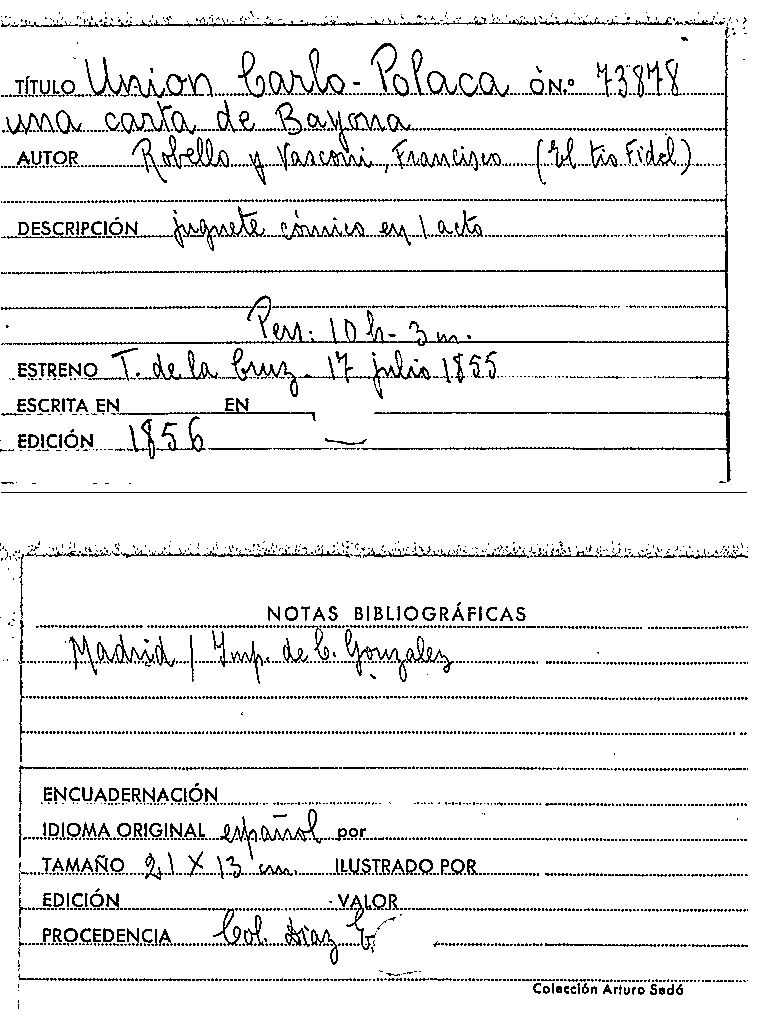 TÍTULO Union Carlo-Polaca ó N.º 73878
una carta de Bayona
AUTOR Robello y Vasconi, Francisco (El tio Fidel)
DESCRIPCIÓN juguete cómico en 1 acto
Pers: 10 h- 3 m.
ESTRENO T. de la Cruz - 17 julio 1855
ESCRITA EN EN
EDICIÓN 1856
NOTAS BIBLIOGRÁFICAS
Madrid / Imp. de C. Gonzalez
ENCUADERNACIÓN
IDIOMA ORIGINAL español por
TAMAÑO 21 X 13 cm. ILUSTRADO POR
EDICIÓN VALOR
PROCEDENCIA Col. Diaz E.
Colección Arturo Sedó